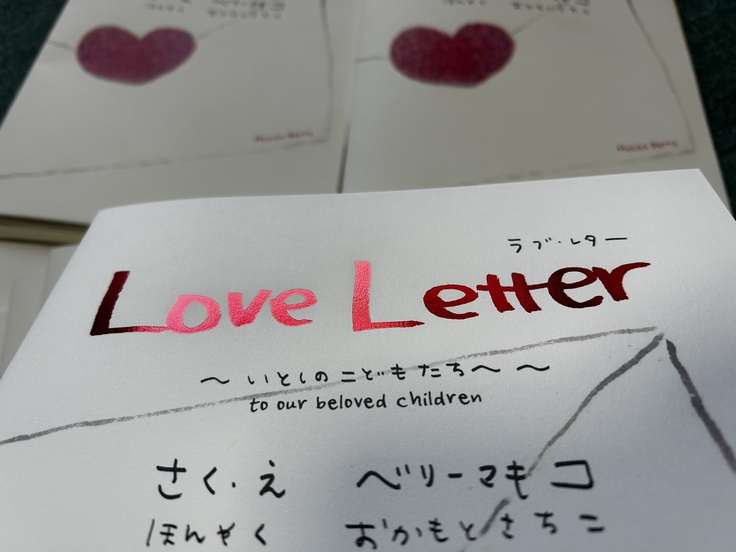 ラブ・レター
Love Letter
〜 いとしのこどもたちへ 〜
to our beloved children
さく・え ベリーマキコ
ほんやく おかもとさちこ